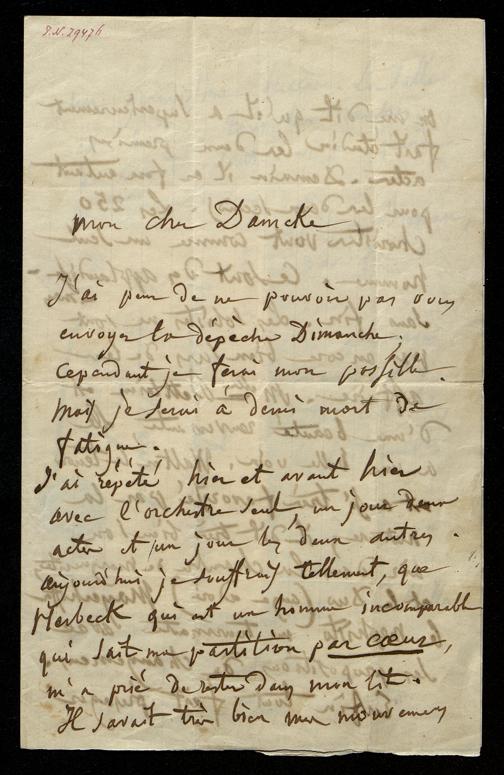 I.N. 7947h
mon cher Damcke
J'ai peur de ne pouvoir pas vous
envoyer la dépèche Dimanche,
cependant je ferai mon possible.
mais je serai à demi mort de
fatigue.
J'ai répété hier et avant hier
avec l'orchestre seul, un jour deux
actes et un jour les deux autres.
aujourdhui je souffrais tellement, que
Herbeck qui est un homme incomparable
qui sait ma partition par cœur,
m'a prié de rester dans mon lit.
Il savait très bien mes mouvemens